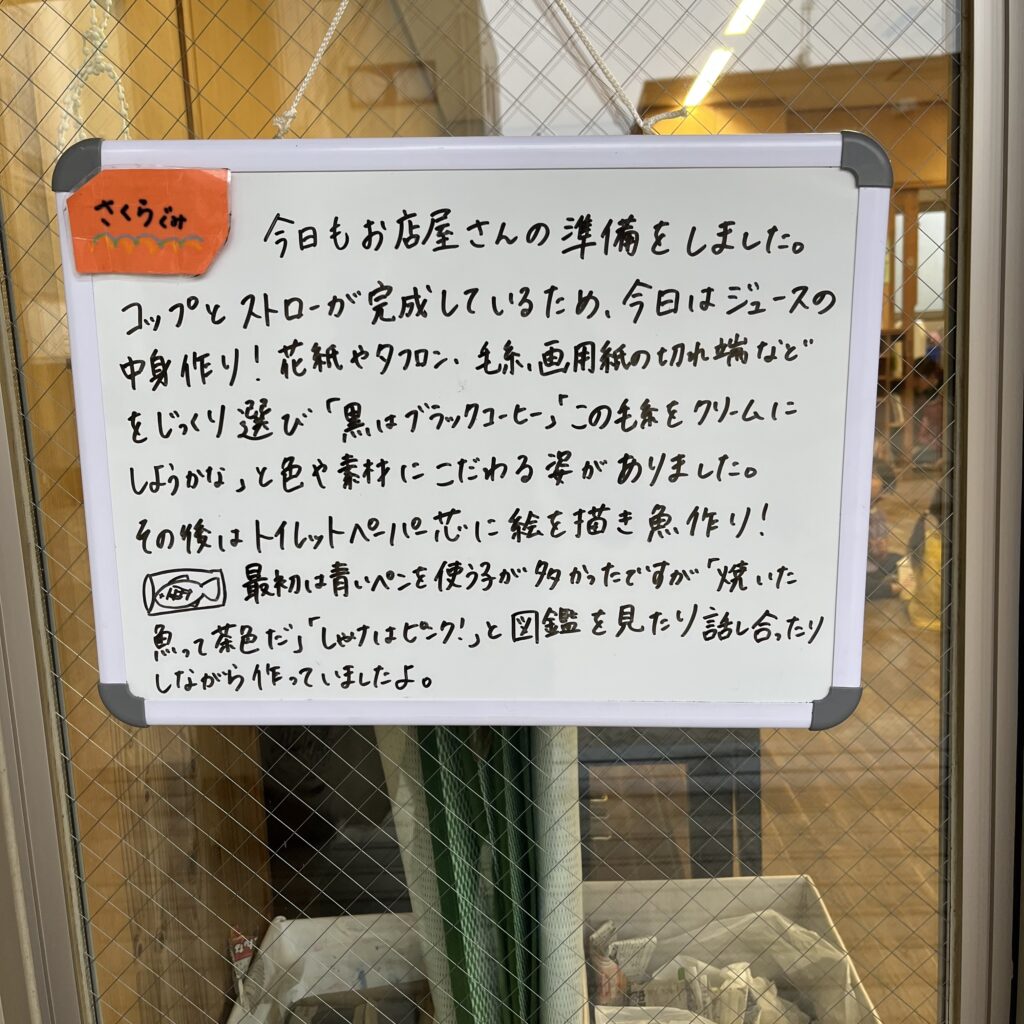 さくらぐみ
今日もお店屋さんの準備をしました。
コップとストローが完成しているため、今日はジュースの
中身作り！花紙やタフロン、毛糸、画用紙の切れ端など
をじっくり選び「黒はブラックコーヒー」「この毛糸をクリームに
しようかな」と色や素材にこだわる姿がありました。
その後はトイレットペーパー芯に絵を描き魚作り！
最初は青いペンを使う子が多かったですが「焼いた
魚って茶色だ」「しゃけはピンク！」と図鑑を見たり話し合ったり
しながら作っていましたよ。